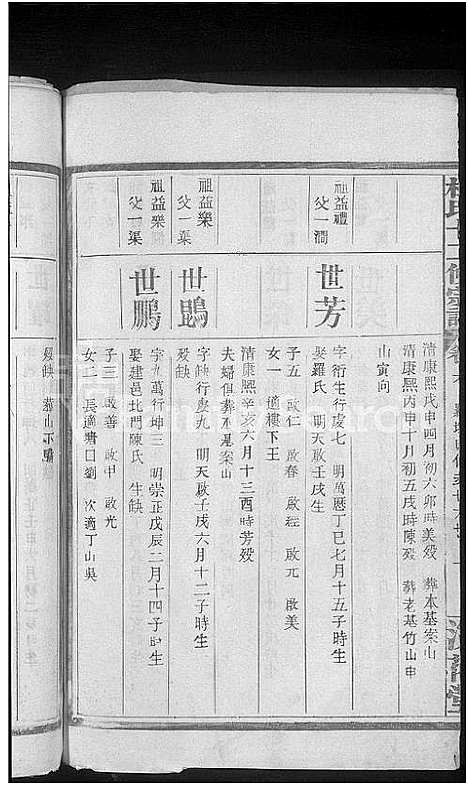 清康熙戊申四月初六卯時美殁 葬本基案山
清康熙丙申十月初五戌時陳殁 葬老基竹山申
山寅向
祖益禮
父一澗
世芳
字衍生行虔七 明萬曆丁巳七月十五子時生
娶羅氏 明天啟壬戌生
子五 啟仁 啟春 啟經 啟元 啟美
女一 適樓下王
清康熙辛亥六月十三酉時芳殁
夫婦俱葬 案山
祖益樂
父一渠
世鵾
字缺行虔九 明天啟壬戌六月十二子時生
殁缺
祖益樂
父一渠
世鵬
字九萬行坤三 明崇正戊辰二月十四子時生
娶建邑北門陳氏 生缺
子三 啟善 啟中 啟光
女二 長適塘口劉 次適丁山吳
殁缺 葬山